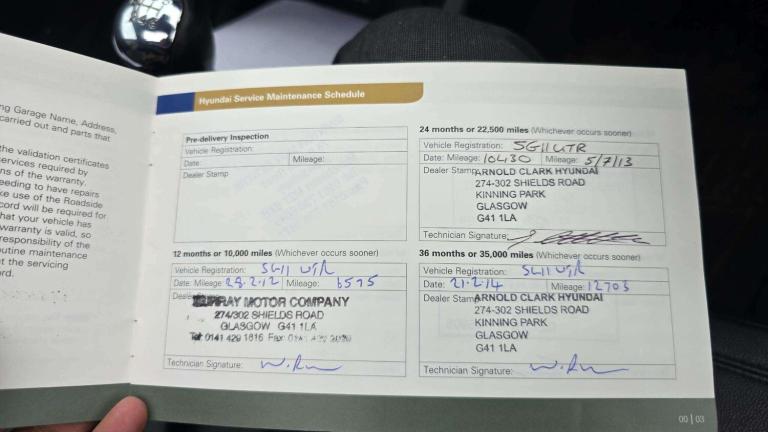 ng Garage Name, Address,
carried out and parts that
the validation certificates
ervices required by
ns of the warranty.
eeding to have repairs
ke use of the Roadside
cord will be required for
hat your vehicle has
warranty is valid, so
responsibility of the
utine maintenance
t the servicing
rd.
Hyundai Service Maintenance Schedule
Pre-delivery Inspection
Vehicle Registration:
Date: Mileage:
Dealer Stamp
12 months or 10,000 miles (Whichever occurs sooner)
Vehicle Registration: SG11 UTR
Date: Mileage: 28.2.12 Mileage: 6575
MURRAY MOTOR COMPANY
274/302 SHIELDS ROAD
GLASGOW G41 1LA
Tel: 0141 429 1816 Fax:
Technician Signature:
24 months or 22,500 miles (Whichever occurs sooner)
Vehicle Registration: SG11 UTR
Date: Mileage: 10430 Mileage: 5/7/13
Dealer Stamp ARNOLD CLARK HYUNDAI
274-302 SHIELDS ROAD
KINNING PARK
GLASGOW
G41 1LA
Technician Signature:
36 months or 35,000 miles (Whichever occurs sooner)
Vehicle Registration: SG11 UTR
Date: 21.2.14 Mileage: 12703
Dealer Stamp ARNOLD CLARK HYUNDAI
274-302 SHIELDS ROAD
KINNING PARK
GLASGOW
G41 1LA
Technician Signature:
00 | 03